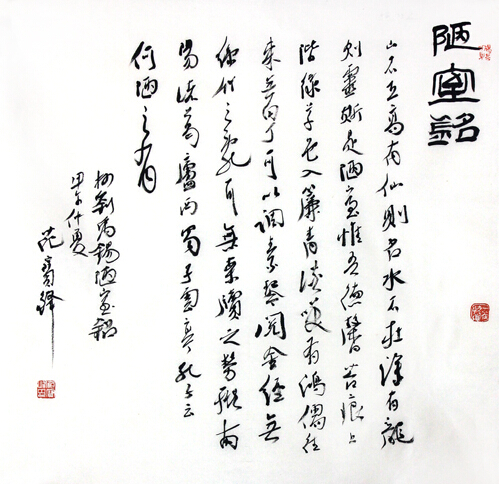 陋室銘
山不在高有仙則名水不在深有龍
則靈斯是陋室惟吾德馨苔痕上
階綠草色入簾青談笑有鴻儒往
來無白丁可以調素琴閱金經無
絲竹之亂耳無案牘之勞形南
陽諸葛廬西蜀子雲亭孔子云
何陋之有
劉禹錫陋室銘
甲午仲夏